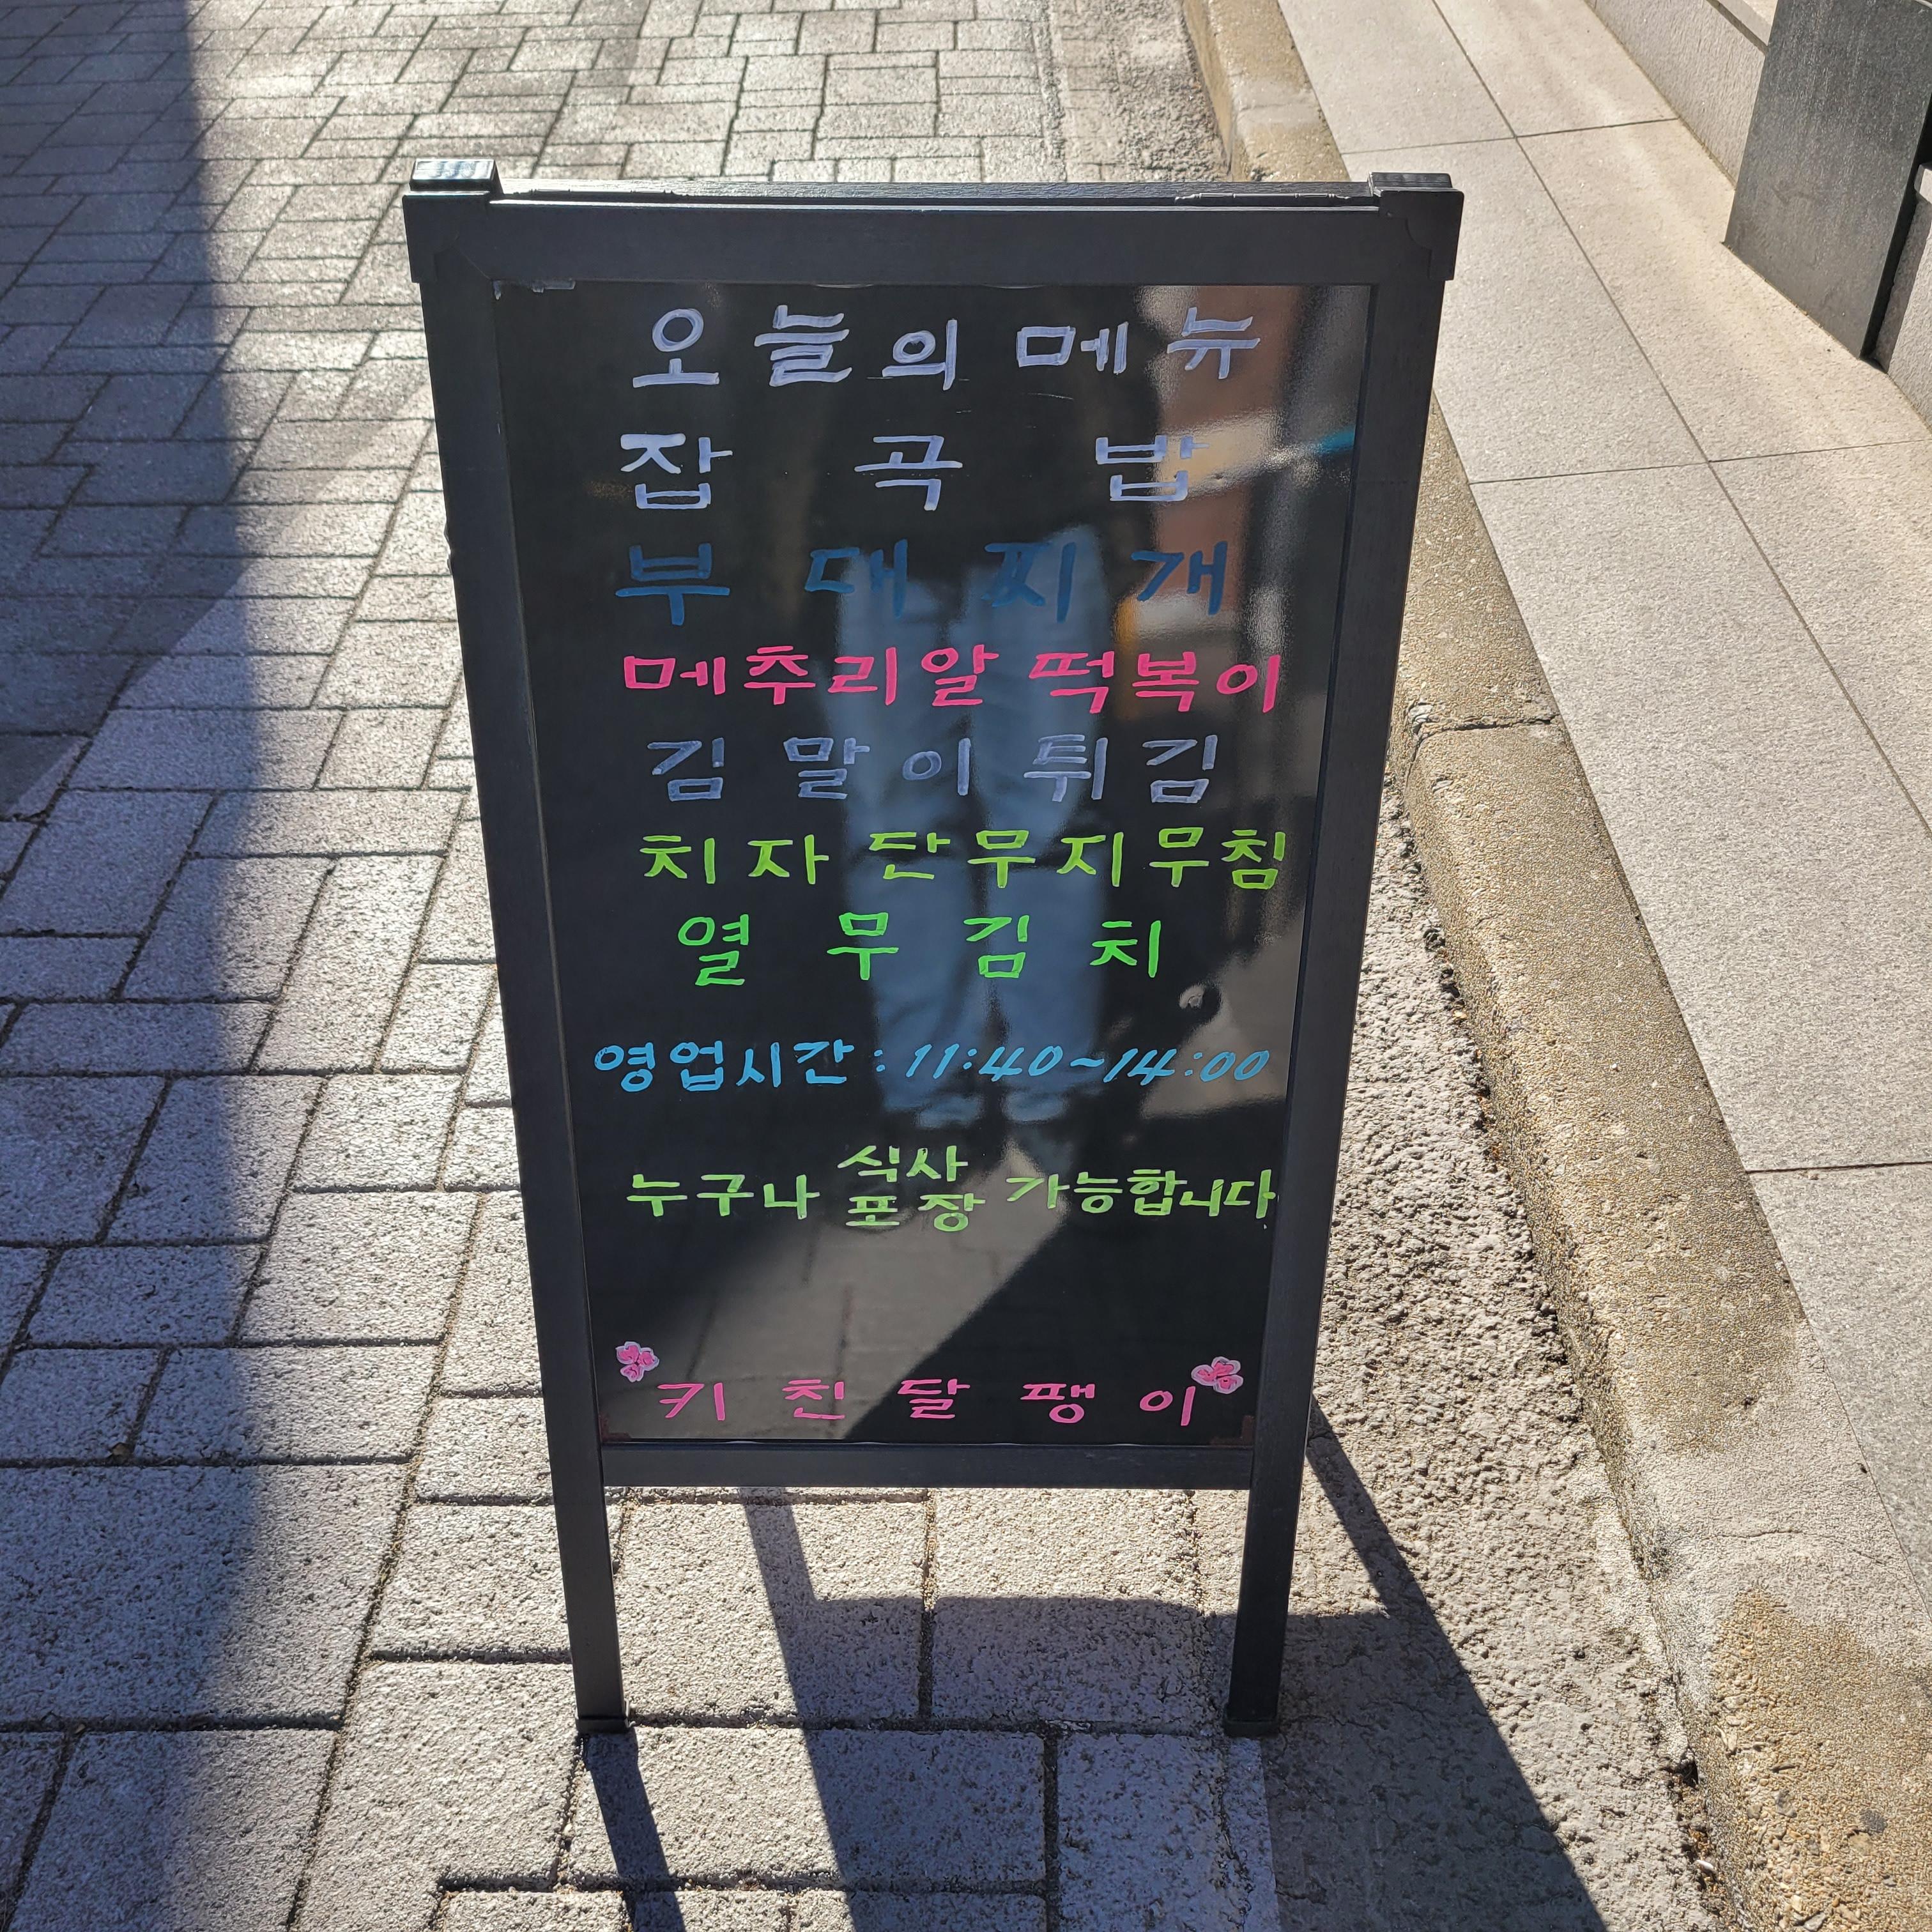 오늘의 메뉴
잡곡밥
부대찌개
메추리알 떡볶이
김말이 튀김
치자 단무지무침
열무김치
영업시간 : 11:40~14:00
누구나 식사 포장 가능합니다
키친달팽이